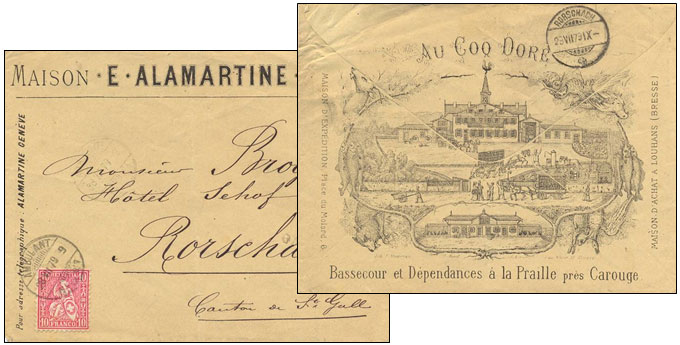 MAISON · E · ALAMARTINE ·
Pour adresse télégraphique: ALAMARTINE GENÈVE
Monsieur Brog
Hôtel
Rorscha
Canton de St Gall
AMBULANT
79
10 10
10 FRANCO 10
RORSCHACH
29 VII 79 IX
AU COQ DORÉ
MAISON D'EXPÉDITION Place du Molard 6
MAISON D'ACHAT A LOUHANS (BRESSE)
Bassecour et Dépendances à la Praille près Carouge